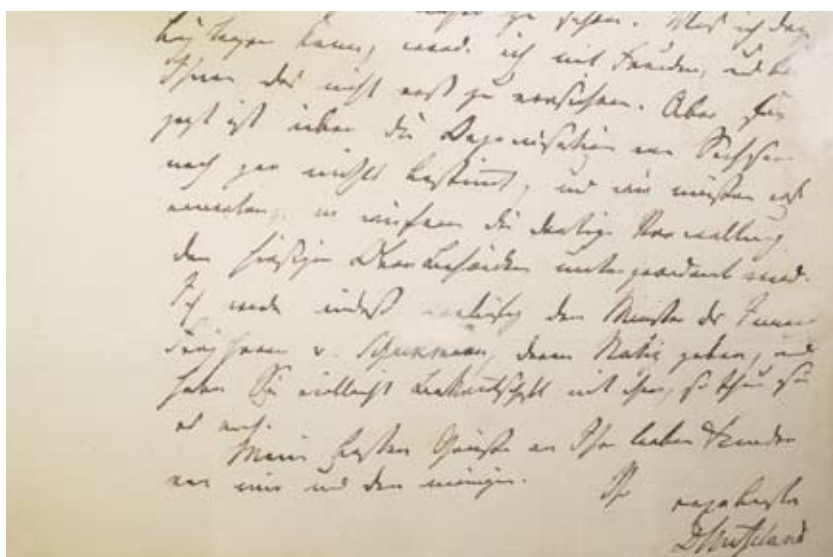 zu sehen. Was ich dazu
beytragen kann, werde ich mit Freuden, und
Ihnen das nicht erst zu versichern. Aber
jetzt ist über die Organisation von Sachsen
noch gar nichts bestimmt, und wir müssen erst
erwarten, in wiefern die dortige Verwaltung
den hiesigen Oberbehörden untergeordnet wird.
Ich werde indeß vorläufig dem Minister des Innern
Freyherrn v. Schuckmann, davon Notiz geben, und
haben Sie vielleicht Bekanntschaft mit ihm, so thun Sie
es auch.
Meine besten Grüße an Ihre lieben Freunde
von mir und den meinigen. Ihr
ergebenster
D Hufeland